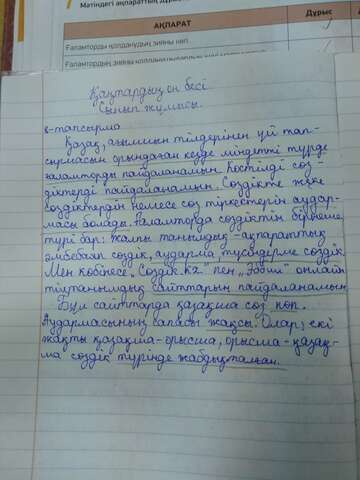 Мәтіндегі ақпараттың дұрыс
АҚПАРАТ
Дұрыс
Ғаламторды қолданудың зияны көп.
Ғаламтордың зияны
Қаңтардың он бесі
Сынып жұмысы.
8-тапсырма
Қазақ, ағылшын тілдерінен үй тап-
сырмасын орындаған кезде міндетті түрде
ғаламторды пайдаланамын. Көптілді сөз-
діктерді пайдаланамын. Сөздікте жеке
сөздіктердің немесе сөз тіркестерінің аудар-
масы болады. Ғаламторда сөздіктің бірнеше
түрі бар: жалпы танымдық-ақпараттық
әмбебап сөздік, аударма, түсіндірме сөздік.
Мен көбінесе "Сөздік.kz" пен онлайн
тілтанымдық сайттарын пайдаланамын
Бұл сайттарда қазақша сөз көп.
Аудармасының сапасы жақсы. Олар; екі
жақты қазақша-орысша, орысша-қазақ-
ша сөздік түрінде жабдықталған.